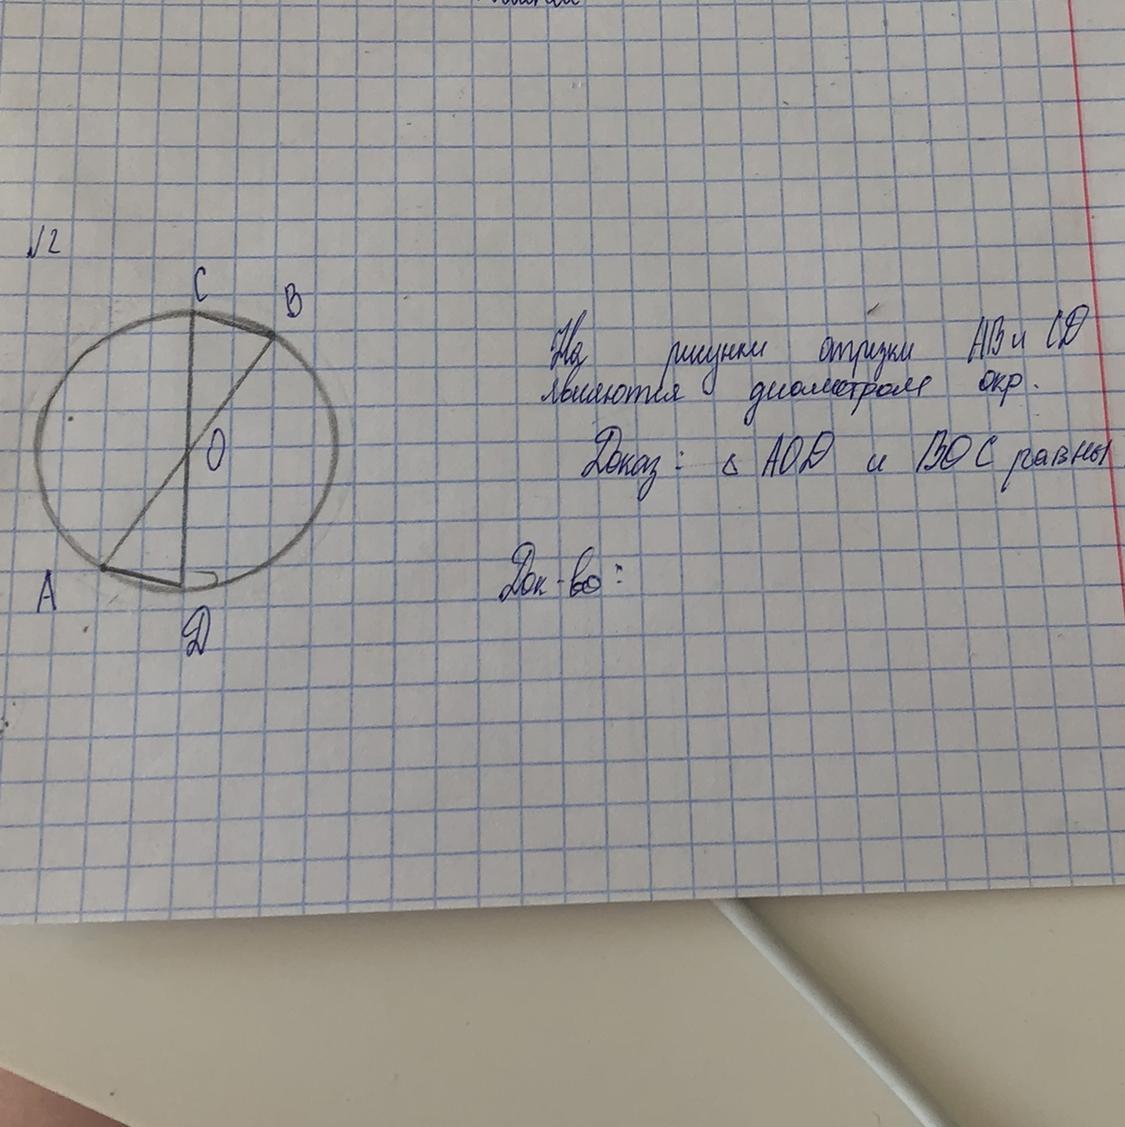 √2
C
B
O
A
D
На рисунки отризки AB и CD
являются диаметром окр.
Доказ: △ AOD и BOC равны
Док-во: